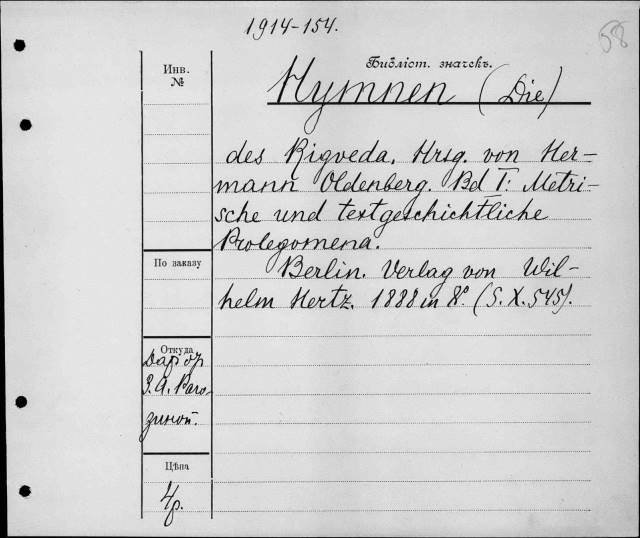 1914-154.
58
Инв.
№
Библіот. значекъ.
Hymnen (Die)
des Rigveda. Hrsg. von Her-
mann Oldenberg. Bd I: Metri-
sche und textgeschichtliche
Prolegomena.
Berlin. Verlag von Wil-
helm Hertz. 1888 in 8°. (S. X. 545).
По заказу
Откуда
Дар от
З. А. Раго-
зиной.
Цѣна
4р.